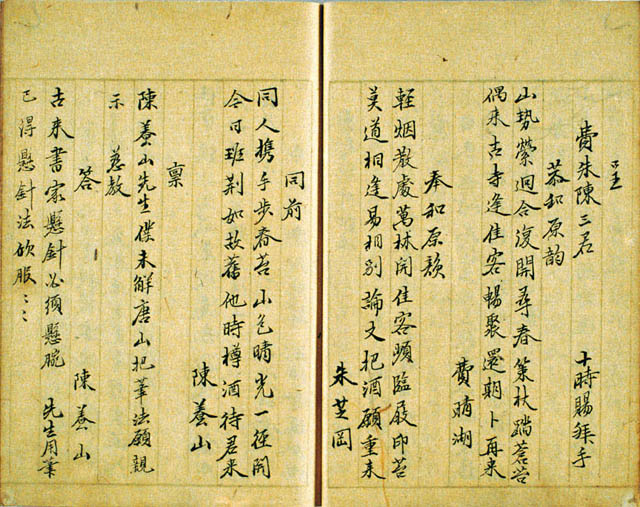 呈
費朱陳三君　十時賜拜手
恭和原韵
山勢縈迴合復開尋春策杖踏蒼苔
偶來古寺逢佳客暢聚還期卜再來
費晴湖
奉和原韻
輕烟散處萬林開佳客頻臨屐印苔
莫道相逢易相別論文把酒願重來
朱芝岡
同前
同人携手步春苔山色晴光一徑開
今日班荆如故舊他時樽酒待君來
陳養山
稟
陳養山先生僕未解唐山把筆法願親
示慈教
答　陳養山
古來書家懸針必須懸腕　先生用筆
已得懸針法欣服〻〻